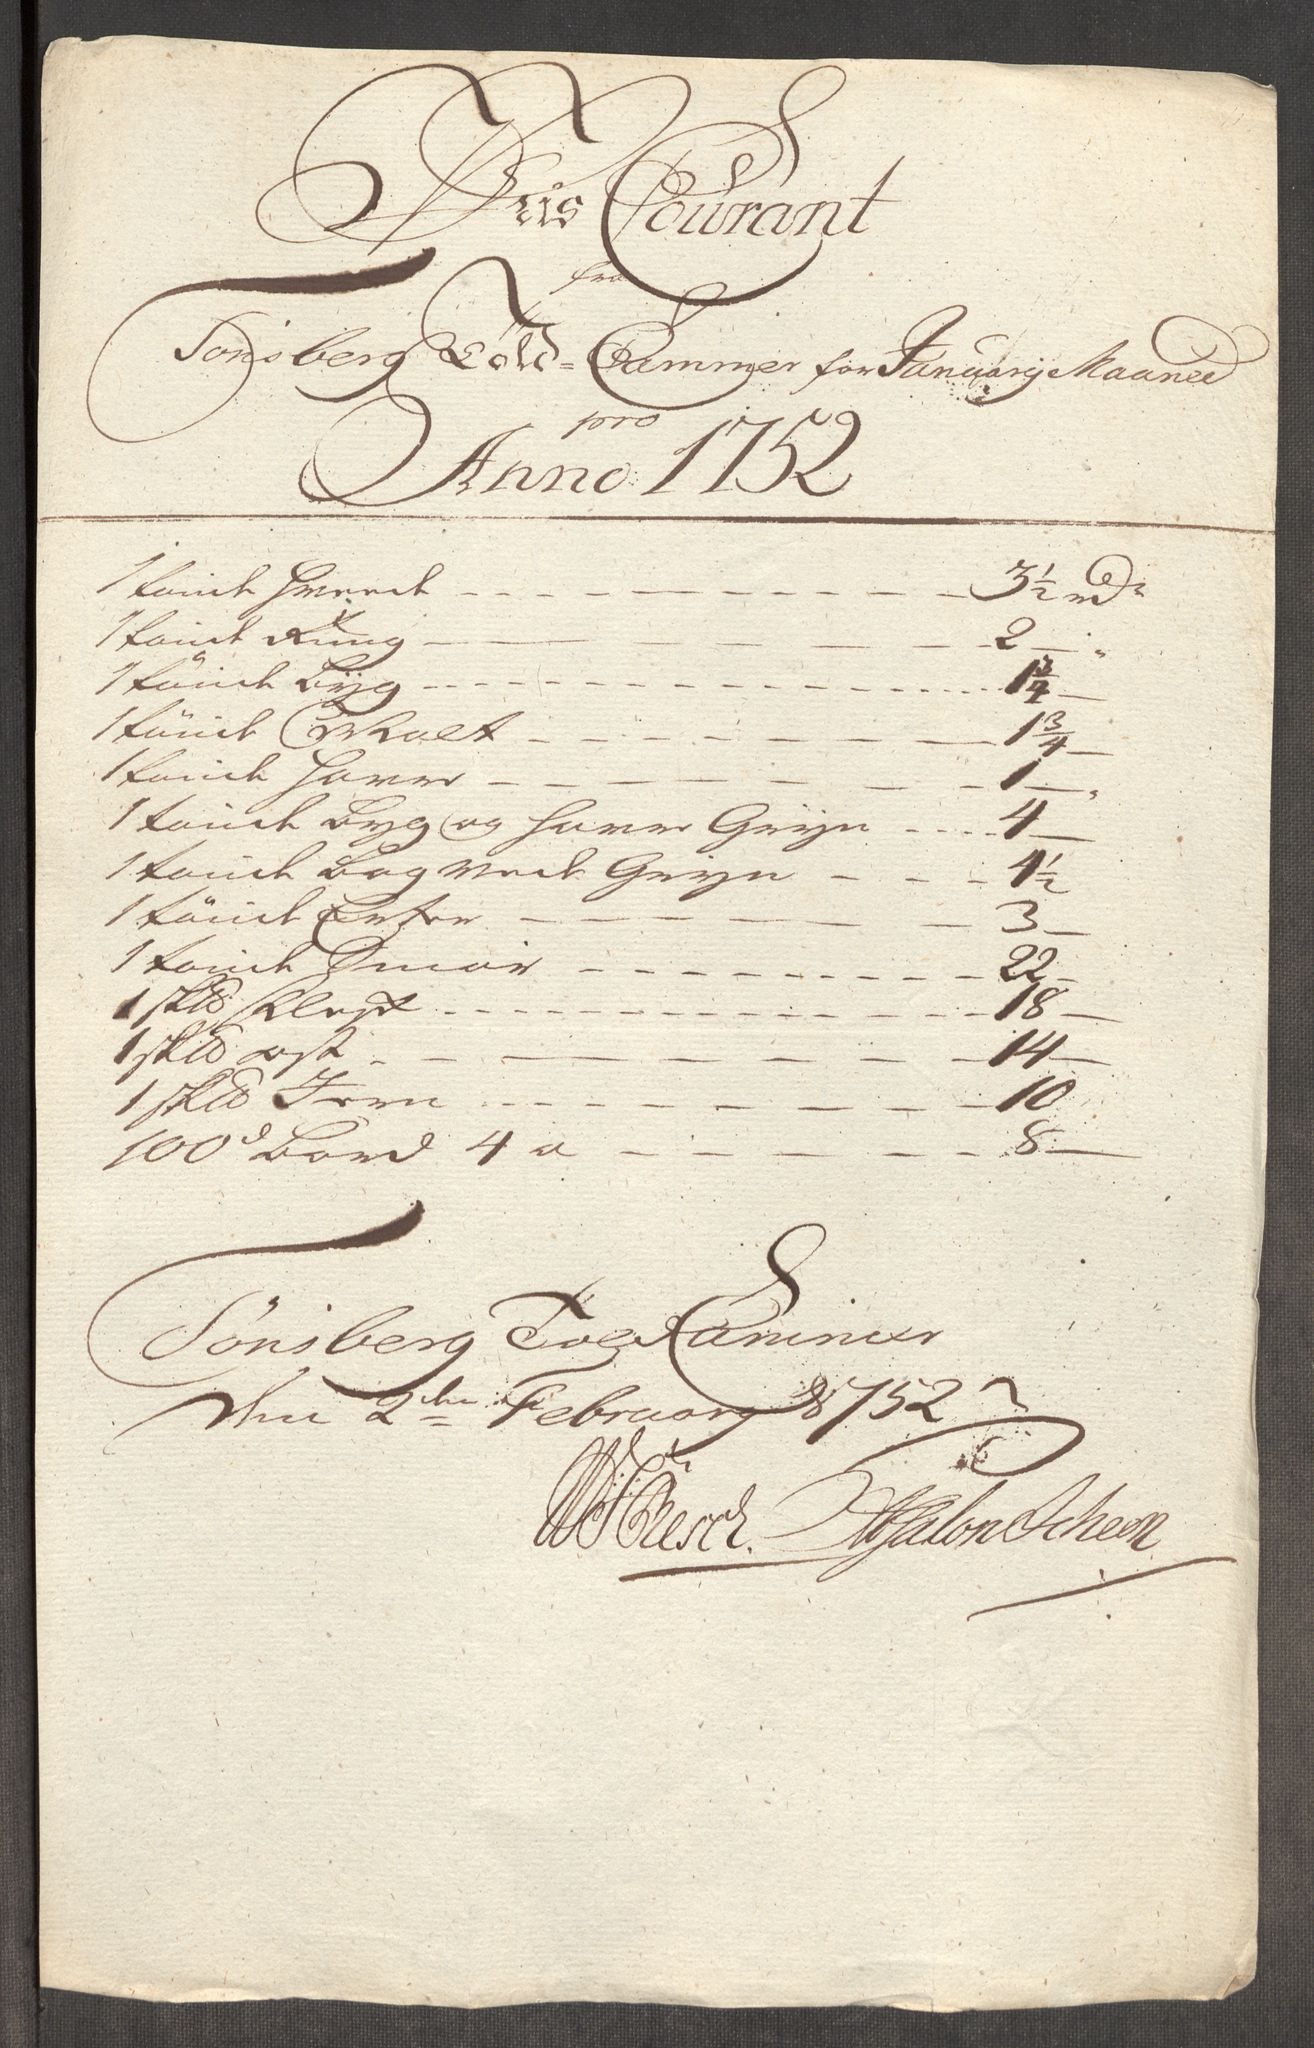 Priis Courant
fra
Tønsberg Told-Cammer for Januarij Maaned
pro
Anno 1752
1 tønde Hvede 3 1/2 rd
1 tønde Rug 2
1 tønde Byg 1 3/4
1 tønde Malt 1 3/4
1 tønde Havre 1
1 tønde Byg og Havre Gryn 4
1 tønde Boghvede Gryn 4 1/2
1 tønde Erter 3
1 tønde Smør 22
1 sk℔ Flesk 18
1 sk℔ ost 14
1 sk℔ Jern 10
100d Bord 4 a 8
Tønsberg Told Cammer
den 2den February 1752
Absalon Scheen